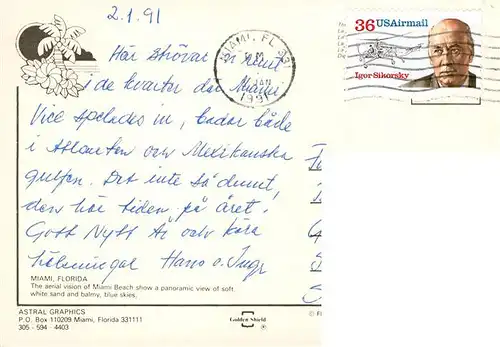 2.1.91
Här strövar vi runt
i de kvarter där Miami
Vice spelades in, badar både
i Atlanten och Mexikanska
gulfen. Det inte så dumt,
den här tiden på året.
Gott Nytt År och kära
hälsningar Hans o. Inge
MIAMI, FL 33
JAN
1991
36 USAirmail
Igor Sikorsky
MIAMI, FLORIDA
The aerial vision of Miami Beach show a panoramic view of soft
white sand and balmy, blue skies.
ASTRAL GRAPHICS
P.O. Box 110209 Miami, Florida 331111
305 - 594 - 4403
Golden Shield